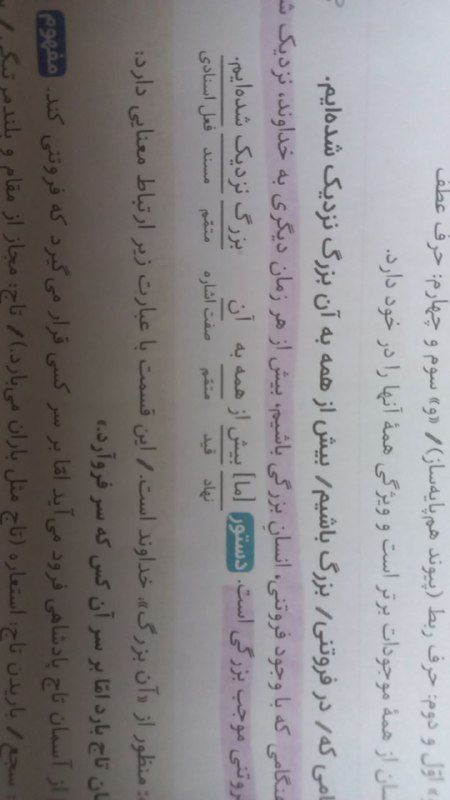 » اوّل و دوم: حرف ربط (پیوند هم‌پایه‌ساز) / «و» سوم و چهارم: حرف عطف
از همهٔ موجودات برتر است و ویژگی همهٔ آنها را در خود دارد.
که / در فروتنی / بزرگ باشیم / بیش از همه به آن بزرگ نزدیک شده‌ایم.
هنگامی که با وجود فروتنی، انسانِ بزرگی باشیم، بیش از هر زمان دیگری به خداوند، نزدیک
موجب بزرگی است. دستور [ما] بیش از همه به آن بزرگ نزدیک شده‌ایم.
نهاد قید متمّم صفت اشاره متمّم مسند فعل اسنادی
: منظور از «آن بزرگ»، خداوند است. / این قسمت با عبارت زیر ارتباط معنایی دارد:
تاج بارد امّا بر سر آن کس که سر فروآرد.»
از آسمان تاج پادشاهی فرود می‌آید امّا بر سر کسی قرار می‌گیرد که فروتنی کند. مفهوم
سجع / باریدن تاج: استعاره (تاج مثل باران می‌بارد.) / تاج: مجاز از مقام و بلندمرتبگی /